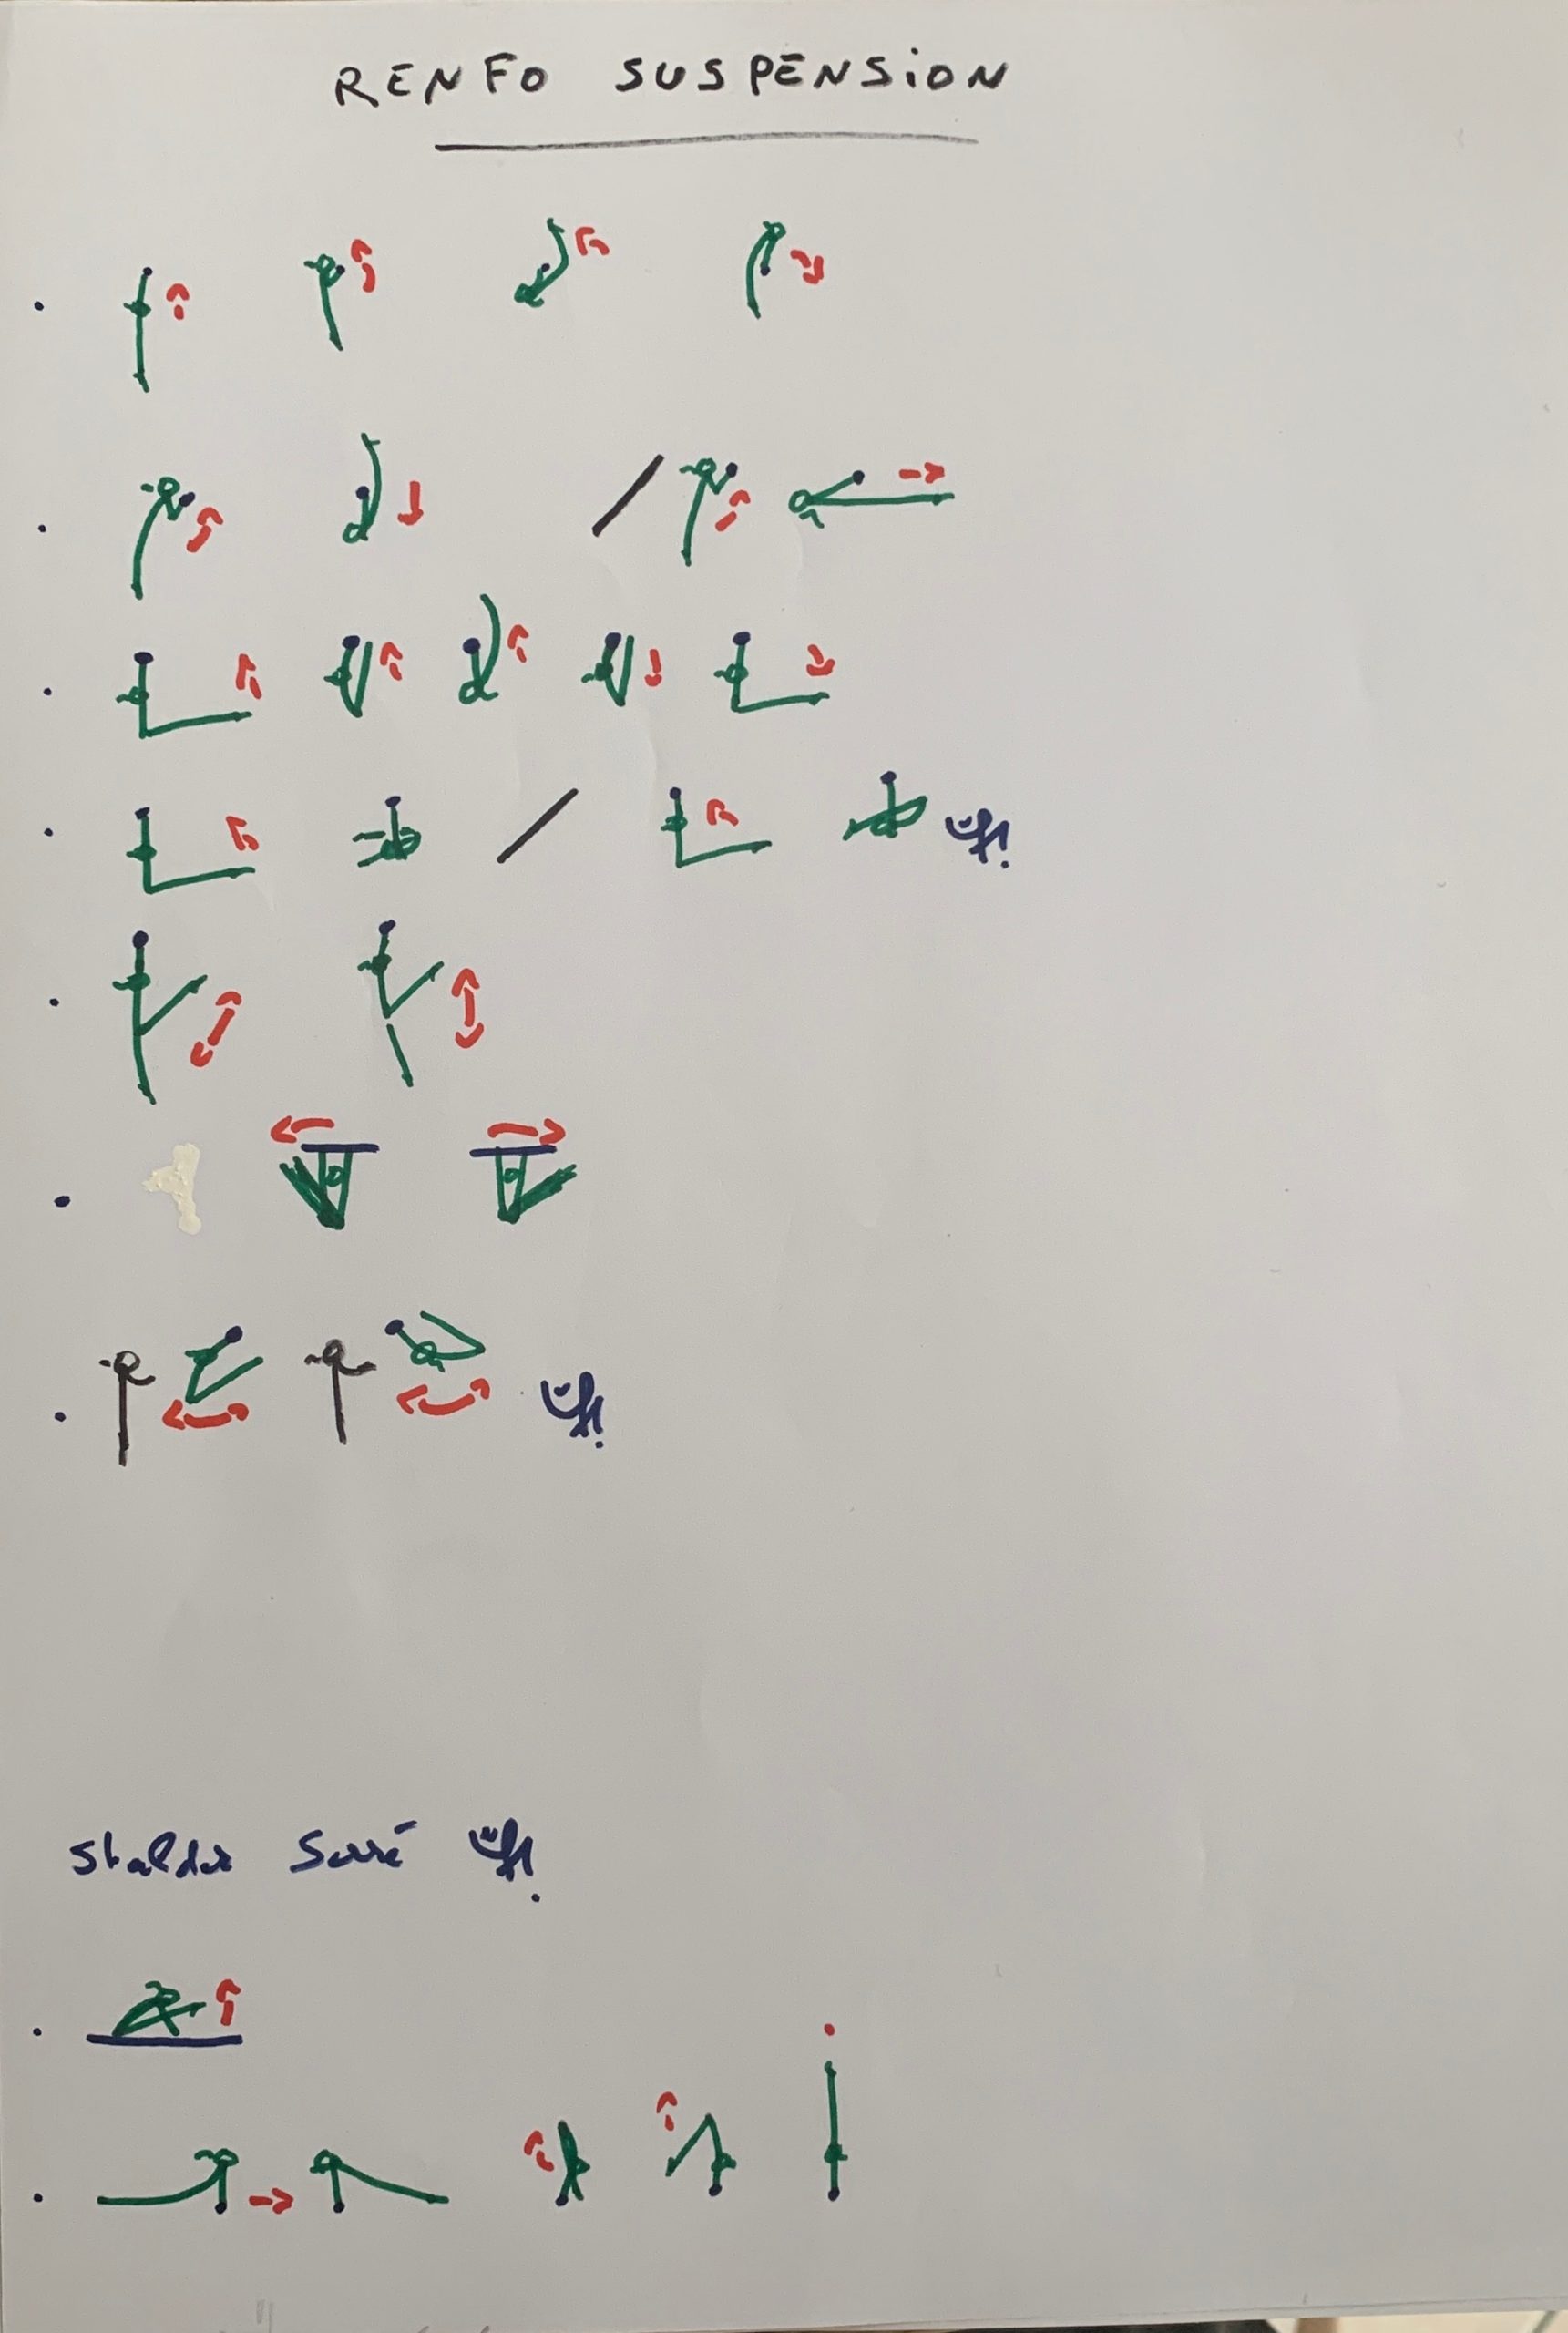 RENFO SUSPENSION
Stalder Serré